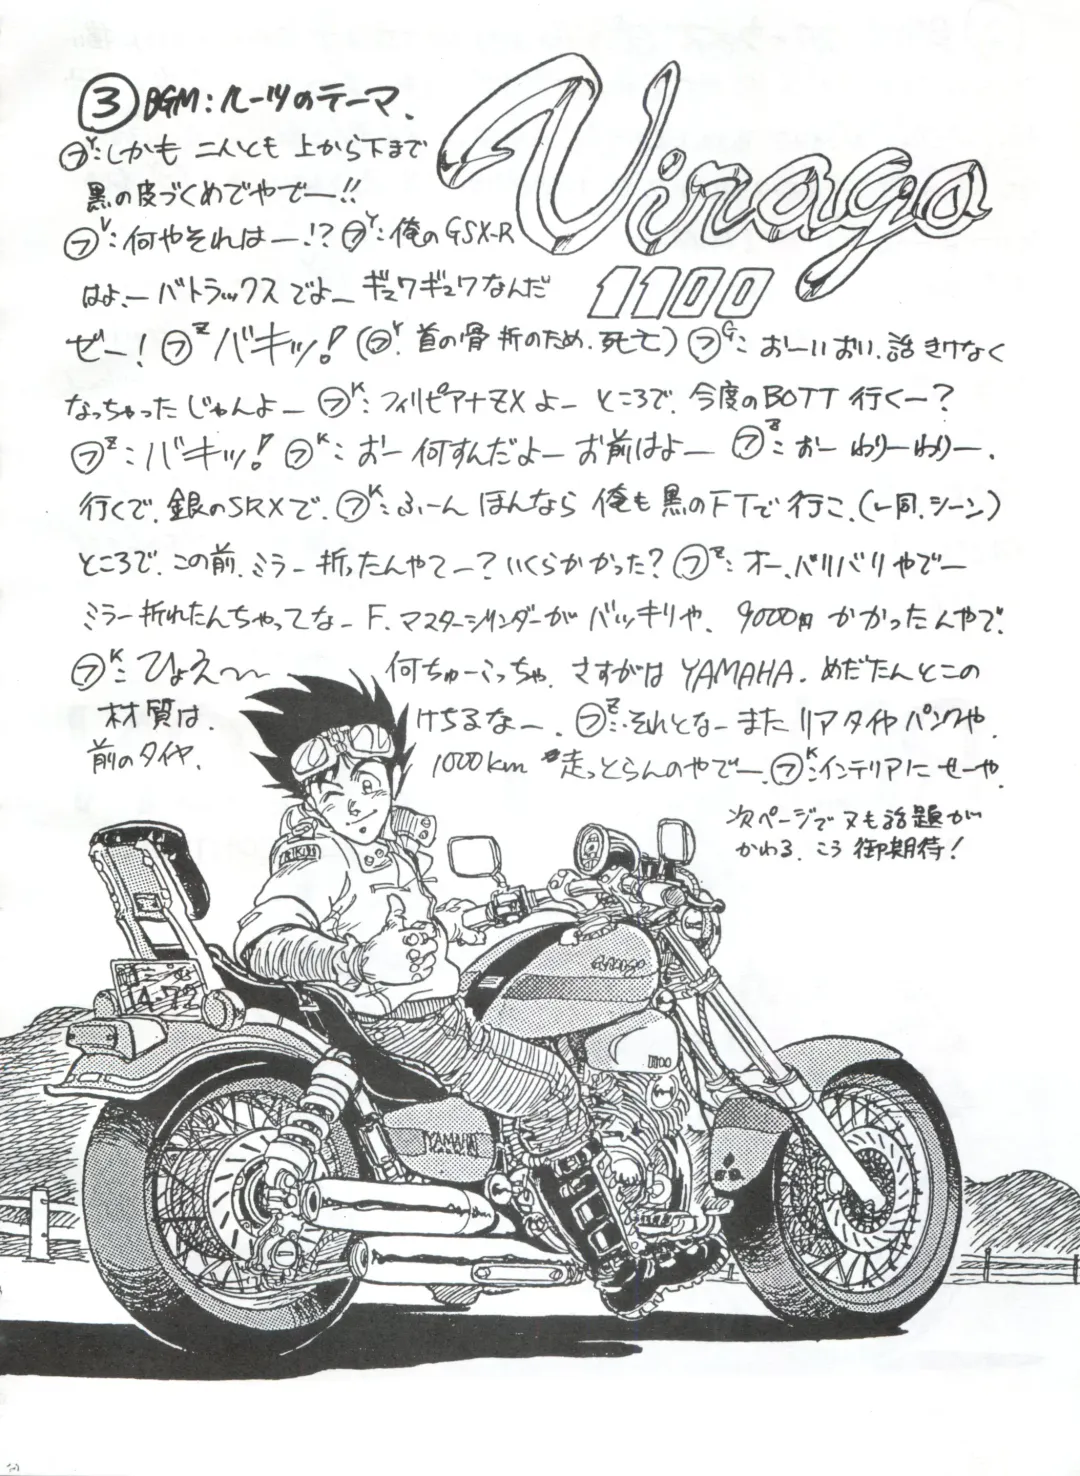 Virago
1100
③ BGM:ルーツのテーマ.
フY:しかも 二人とも 上から下まで
黒の皮づくめでやでー!!
フV:何やそれはー!? フY:俺のGSX-R
はよ、ーバトラックスでよー ギュワギュワなんだ
ぜー! フZ バキッ! (フY. 首の骨 折のため.死亡) フG:おーいおい.話きけなく
なっちゃったじゃんよー フK:フィリピアナZXよー ところで.今度のBOTT 行くー?
フZ:バキッ! フK:おー 何すんだよー お前はよー フZ:おー わりーわりー.
行くで.銀のSRXで. フK:ふーん ほんなら 俺も黒のFTで行こ.(一同.シーン)
ところで.この前.ミラー 折ったんやてー?いくらかかった? フZ:オー、バリバリやでー
ミラー折れたんちゃってなー F.マスターシリンダーがバッキリや. 9000円かかったんやで.
フK:ひょえ〜〜 何ちゅーこっちゃ.さすがは YAMAHA.めだたんとこの
材質は. けちるなー. フZ:それとなー また リアタイヤ パンクや.
前のタイヤ. 1000km 走っとらんのやでー. フK:インテリアにせーや.
次ページでヌも話題が
かわる.こう御期待!
14-72
Virago
1100
YAMAHA